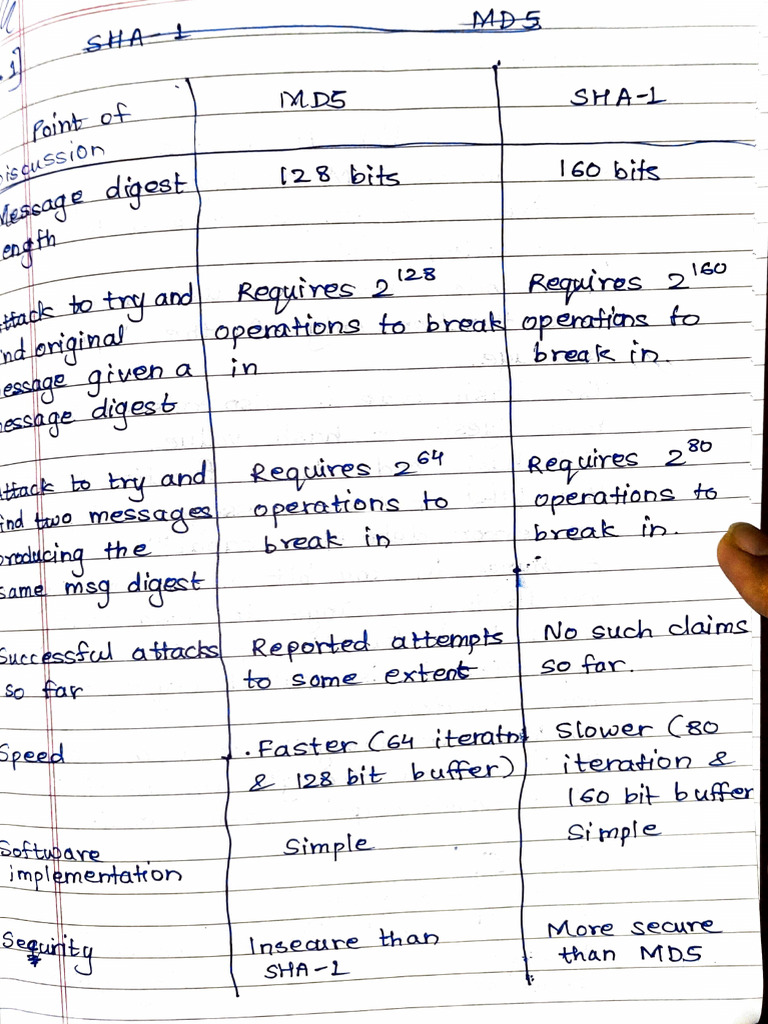 SHA-1 MD5
.1]
Point of MD5 SHA-1
iscussion
Message digest 128 bits 160 bits
ength
ttack to try and Requires 2^128 Requires 2^160
nd original operations to break operations to
essage given a in break in.
essage digest
ttack to try and Requires 2^64 Requires 2^80
ind two messages operations to operations to
roducing the break in break in.
same msg digest
Successful attacks Reported attempts No such claims
so far to some extent so far.
Speed .Faster (64 iteratn Slower (80
& 128 bit buffer) iteration &
160 bit buffer
Software Simple Simple
implementation
Sequrity Insecure than More secure
SHA-1 than MD5